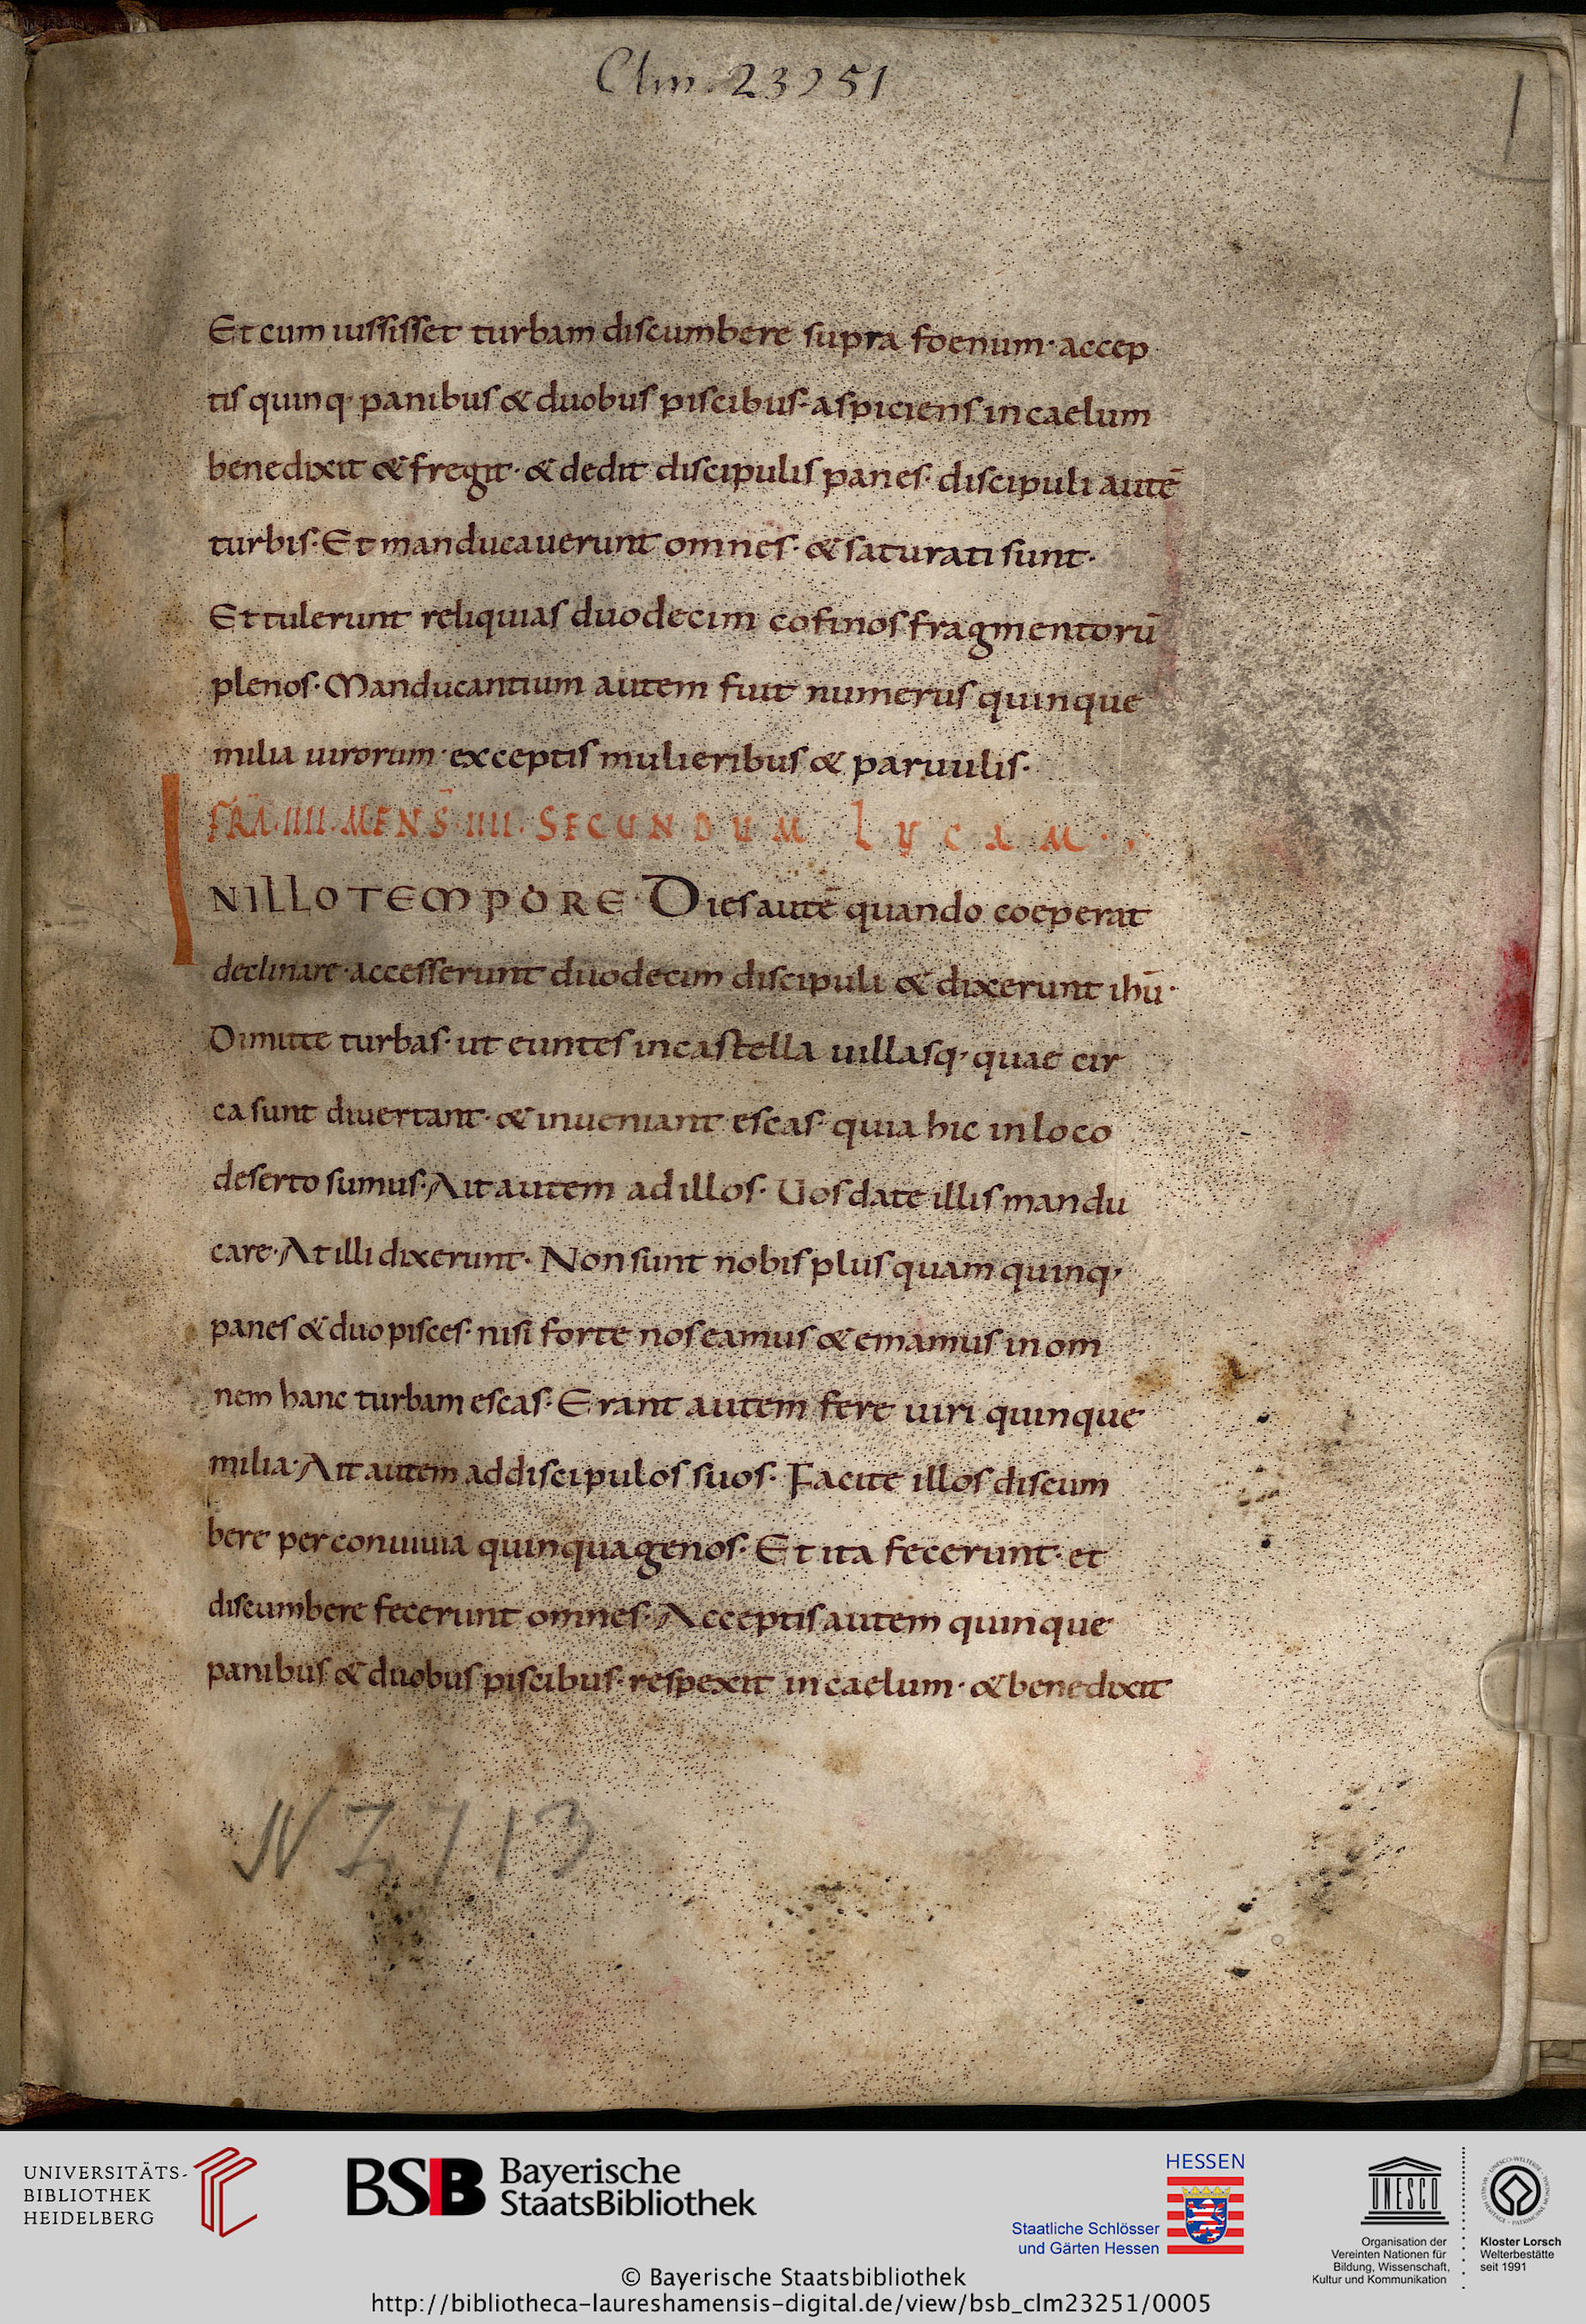 Clm. 23251
1
Et cum iussisset turbam discumbere supra foenum· accep
tis quinq· panibus & duobus piscibus· aspiciens in caelum
benedixit & fregit· & dedit discipulis panes· discipuli autē
turbis· Et manducauerunt omnes· & saturati sunt·
Et tulerunt reliquias duodecim cofinos fragmentorū
plenos· Manducantium autem fuit numerus quinque
milia uirorum· exceptis mulieribus & paruulis·
FRĀ·IIII·MENS̄·IIII·SECUNDUM LUCAM·
IN ILLO TEMPORE· Dies autē quando coeperat
declinare· accesserunt duodecim discipuli & dixerunt ihū·
Dimitte turbas· ut euntes in castella uillasq· quae cir
ca sunt diuertant· & inueniant escas· quia hic in loco
deserto sumus· Ait autem ad illos· Uos date illis mandu
care· At illi dixerunt· Non sunt nobis plus quam quinq·
panes & duo pisces· nisi forte nos eamus & emamus in om
nem hanc turbam escas· Erant autem fere uiri quinque
milia· Ait autem ad discipulos suos· Facite illos discum
bere per conuiuia quinquagenos· Et ita fecerunt· et
discumbere fecerunt omnes· Acceptis autem quinque
panibus & duobus piscibus· respexit in caelum· & benedixit
N Z 713
UNIVERSITÄTS-
BIBLIOTHEK
HEIDELBERG
BSB Bayerische
StaatsBibliothek
HESSEN
Staatliche Schlösser
und Gärten Hessen
UNESCO
Organisation der
Vereinten Nationen für
Bildung, Wissenschaft,
Kultur und Kommunikation
Kloster Lorsch
Welterbestätte
seit 1991
© Bayerische Staatsbibliothek
http://bibliotheca-laureshamensis-digital.de/view/bsb_clm23251/0005